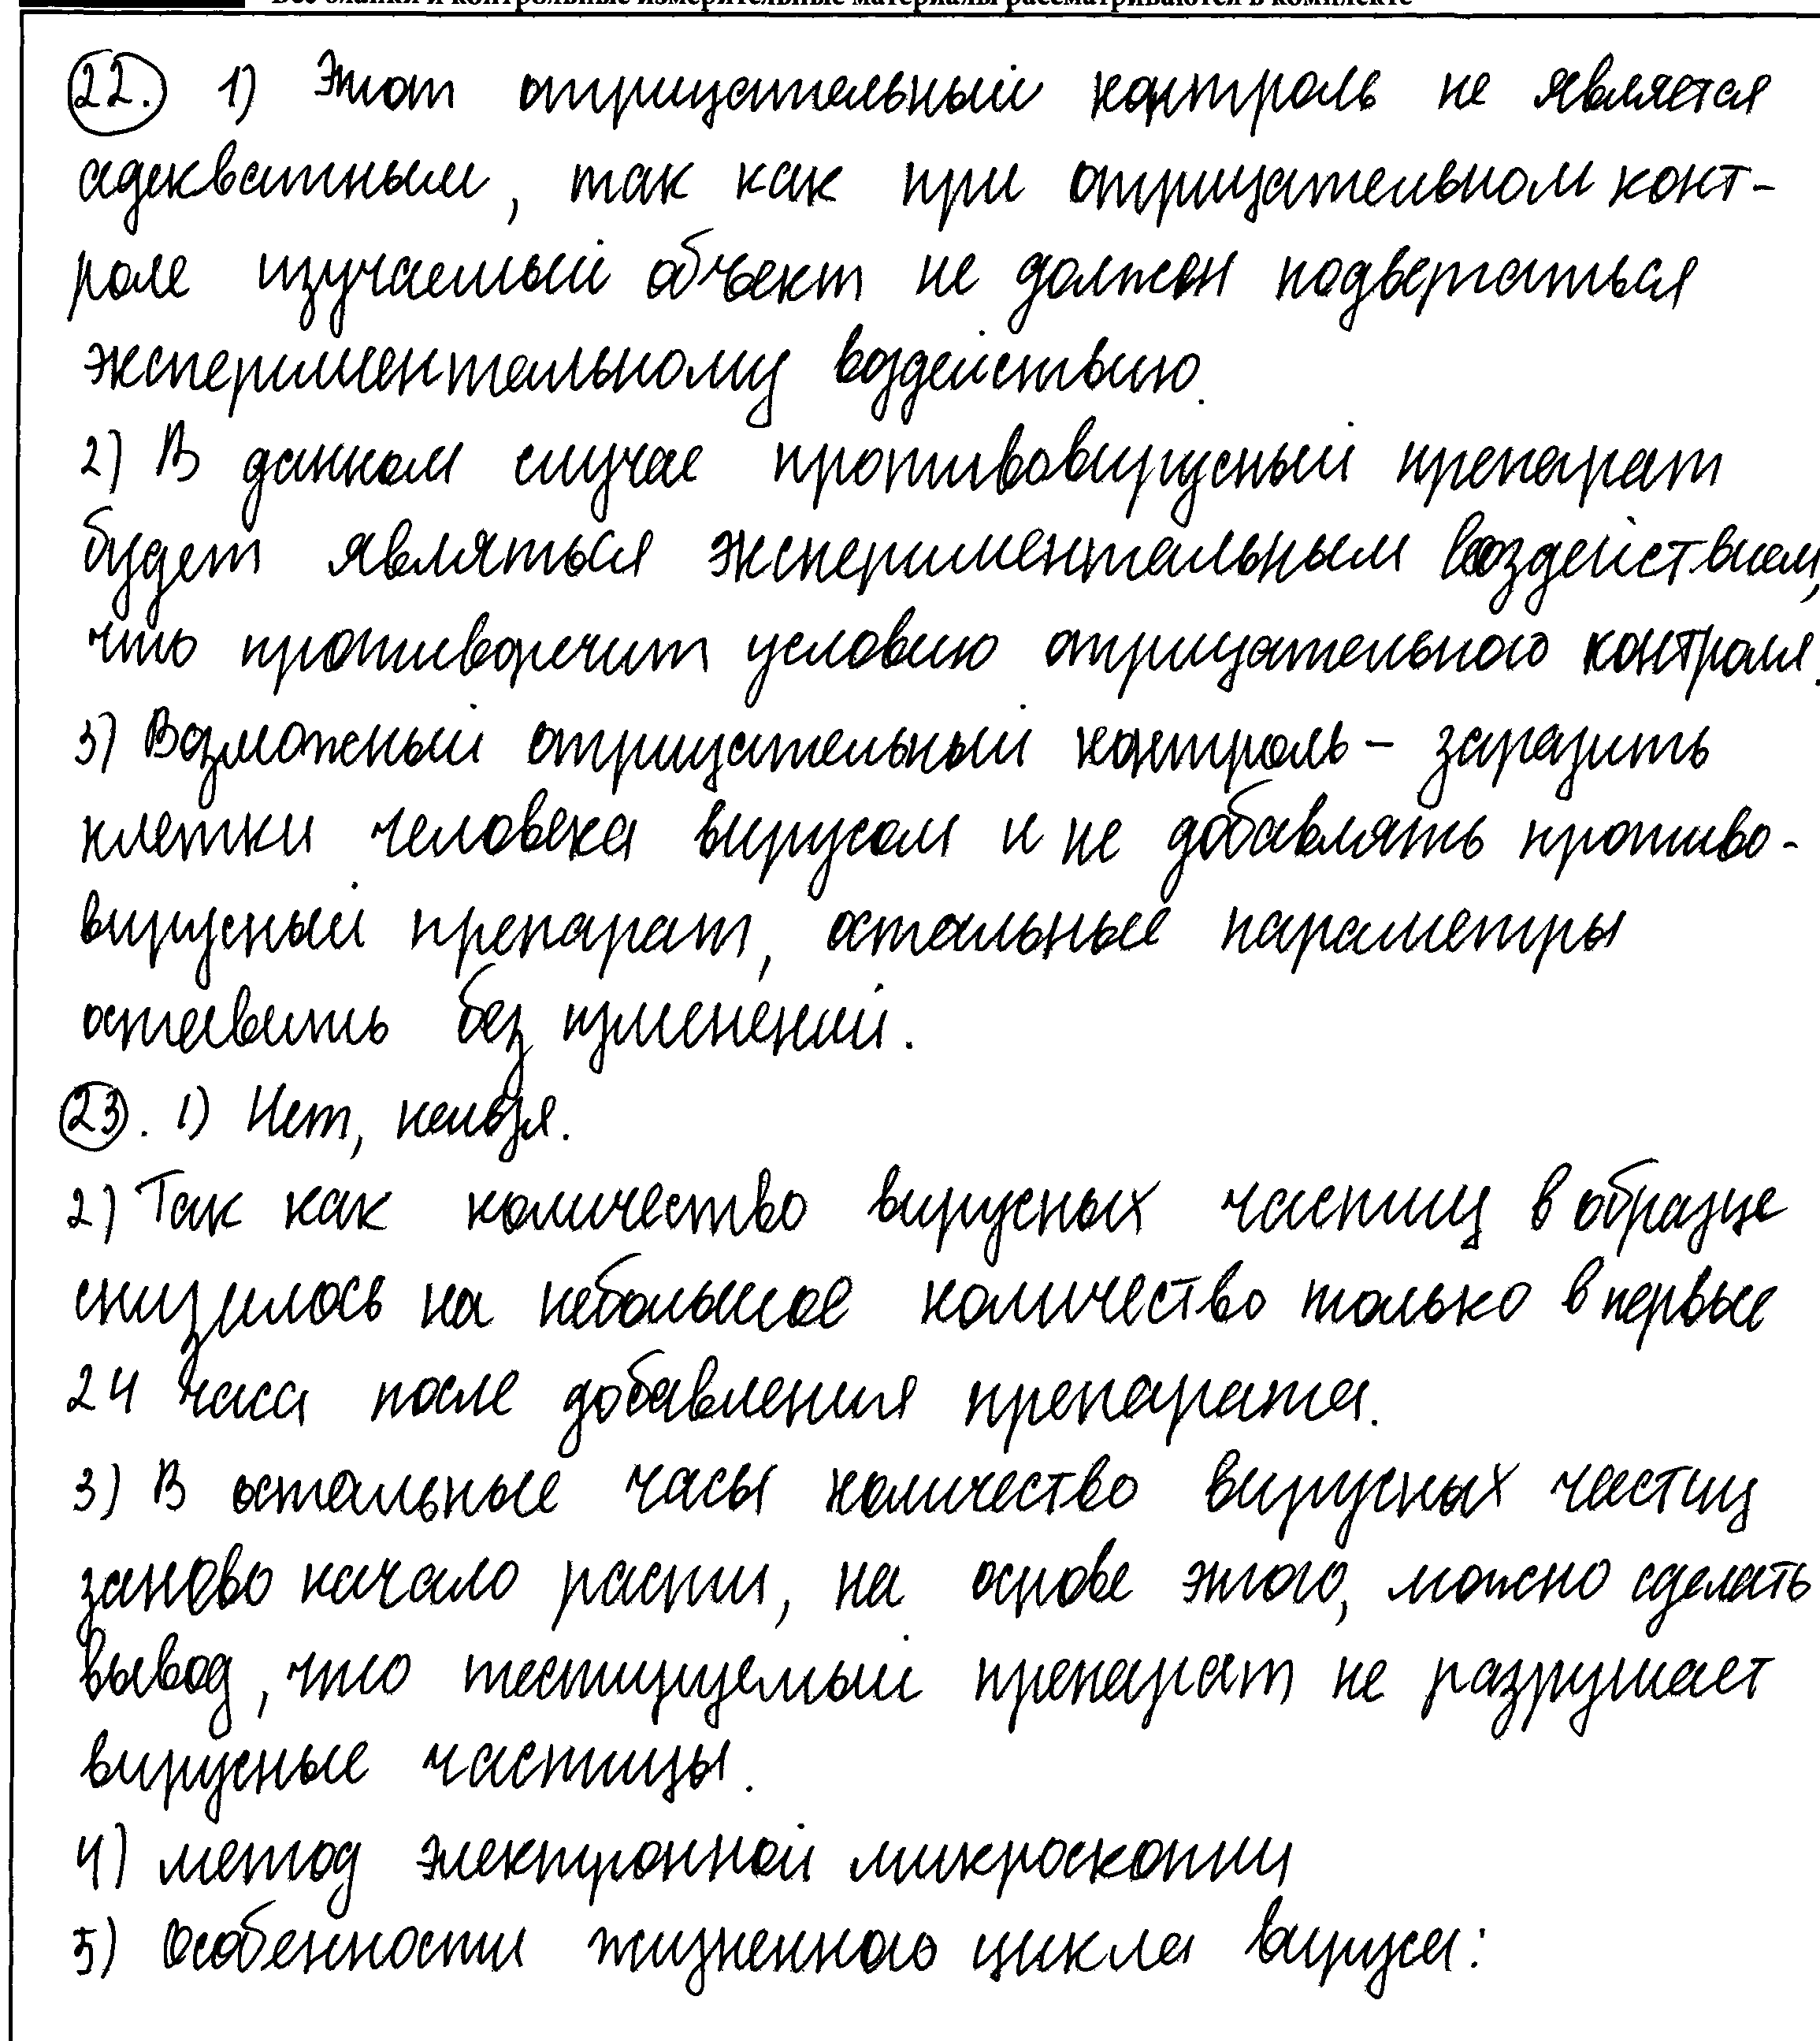 Все бланки и контрольные измерительные материалы рассматриваются в комплекте
22. 1) Этот отрицательный контроль не является
адекватным, так как при отрицательном конт-
роле изучаемый объект не должен подвергаться
экспериментальному воздействию.
2) В данном случае противовирусный препарат
будет являться экспериментальным воздействием,
что противоречит условию отрицательного контроля.
3) Возможный отрицательный контроль – заразить
клетки человека вирусом и не добавлять противо-
вирусный препарат, остальные параметры
оставить без изменений.
23. 1) Нет, нельзя.
2) Так как количество вирусных частиц в образце
снизилось на небольшое количество только в первые
24 часа после добавления препарата.
3) В остальные часы количество вирусных частиц
заново начало расти, на основе этого, можно сделать
вывод, что тестируемый препарат не разрушает
вирусные частицы.
4) метод электронной микроскопии
5) Особенности жизненного цикла вируса: